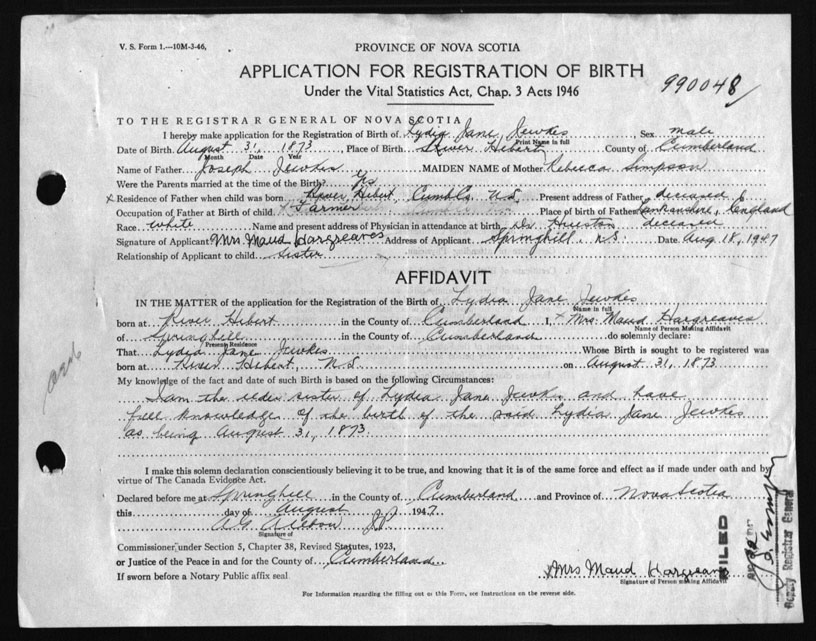 V. S. Form 1.—10M-3-46,
PROVINCE OF NOVA SCOTIA
APPLICATION FOR REGISTRATION OF BIRTH
Under the Vital Statistics Act, Chap. 3 Acts 1946
990048
TO THE REGISTRAR GENERAL OF NOVA SCOTIA
I hereby make application for the Registration of Birth of Lydia Jane Jewkes Sex male
Print Name in full
Date of Birth August 31, 1873 Place of Birth River Hebert County of Cumberland
Month Date Year
Name of Father Joseph Jewkes MAIDEN NAME of Mother Rebecca Simpson
Were the Parents married at the time of the Birth? yes
x Residence of Father when child was born River Hebert, Cumb Co. N.S. Present address of Father deceased
Occupation of Father at Birth of child Farmer Place of birth of Father Lankanshire, England
Race white Name and present address of Physician in attendance at birth Dr. Huestis deceased
Signature of Applicant Mrs Maud Hargreaves Address of Applicant Springhill, N.S. Date Aug 18, 1947
Relationship of Applicant to child sister
AFFIDAVIT
IN THE MATTER of the application for the Registration of the Birth of Lydia Jane Jewkes
Name in full
born at River Hebert in the County of Cumberland I, x Mrs. Maud Hargreaves
Name of Person Making Affidavit
of Springhill in the County of Cumberland do solemnly declare:
Present Residence
That Lydia Jane Jewkes Whose Birth is sought to be registered was
born at River Hebert, N.S. on August 31, 1873
My knowledge of the fact and date of such Birth is based on the following Circumstances:
I am the elder sister of Lydia Jane Jewkes and have
full knowledge of the birth of the said Lydia Jane Jewkes
as being August 31, 1873.
I make this solemn declaration conscientiously believing it to be true, and knowing that it is of the same force and effect as if made under oath and by
virtue of The Canada Evidence Act.
Declared before me at Springhill in the County of Cumberland and Province of Nova Scotia
this day of August 1947
J.P.
Signature of
Commissioner under Section 5, Chapter 38, Revised Statutes, 1923,
or Justice of the Peace in and for the County of Cumberland
If sworn before a Notary Public affix seal
x Mrs Maud Hargreaves
Signature of Person making Affidavit
For Information regarding the filling out of this Form, see Instructions on the reverse side.
FILED
Deputy Registrar General